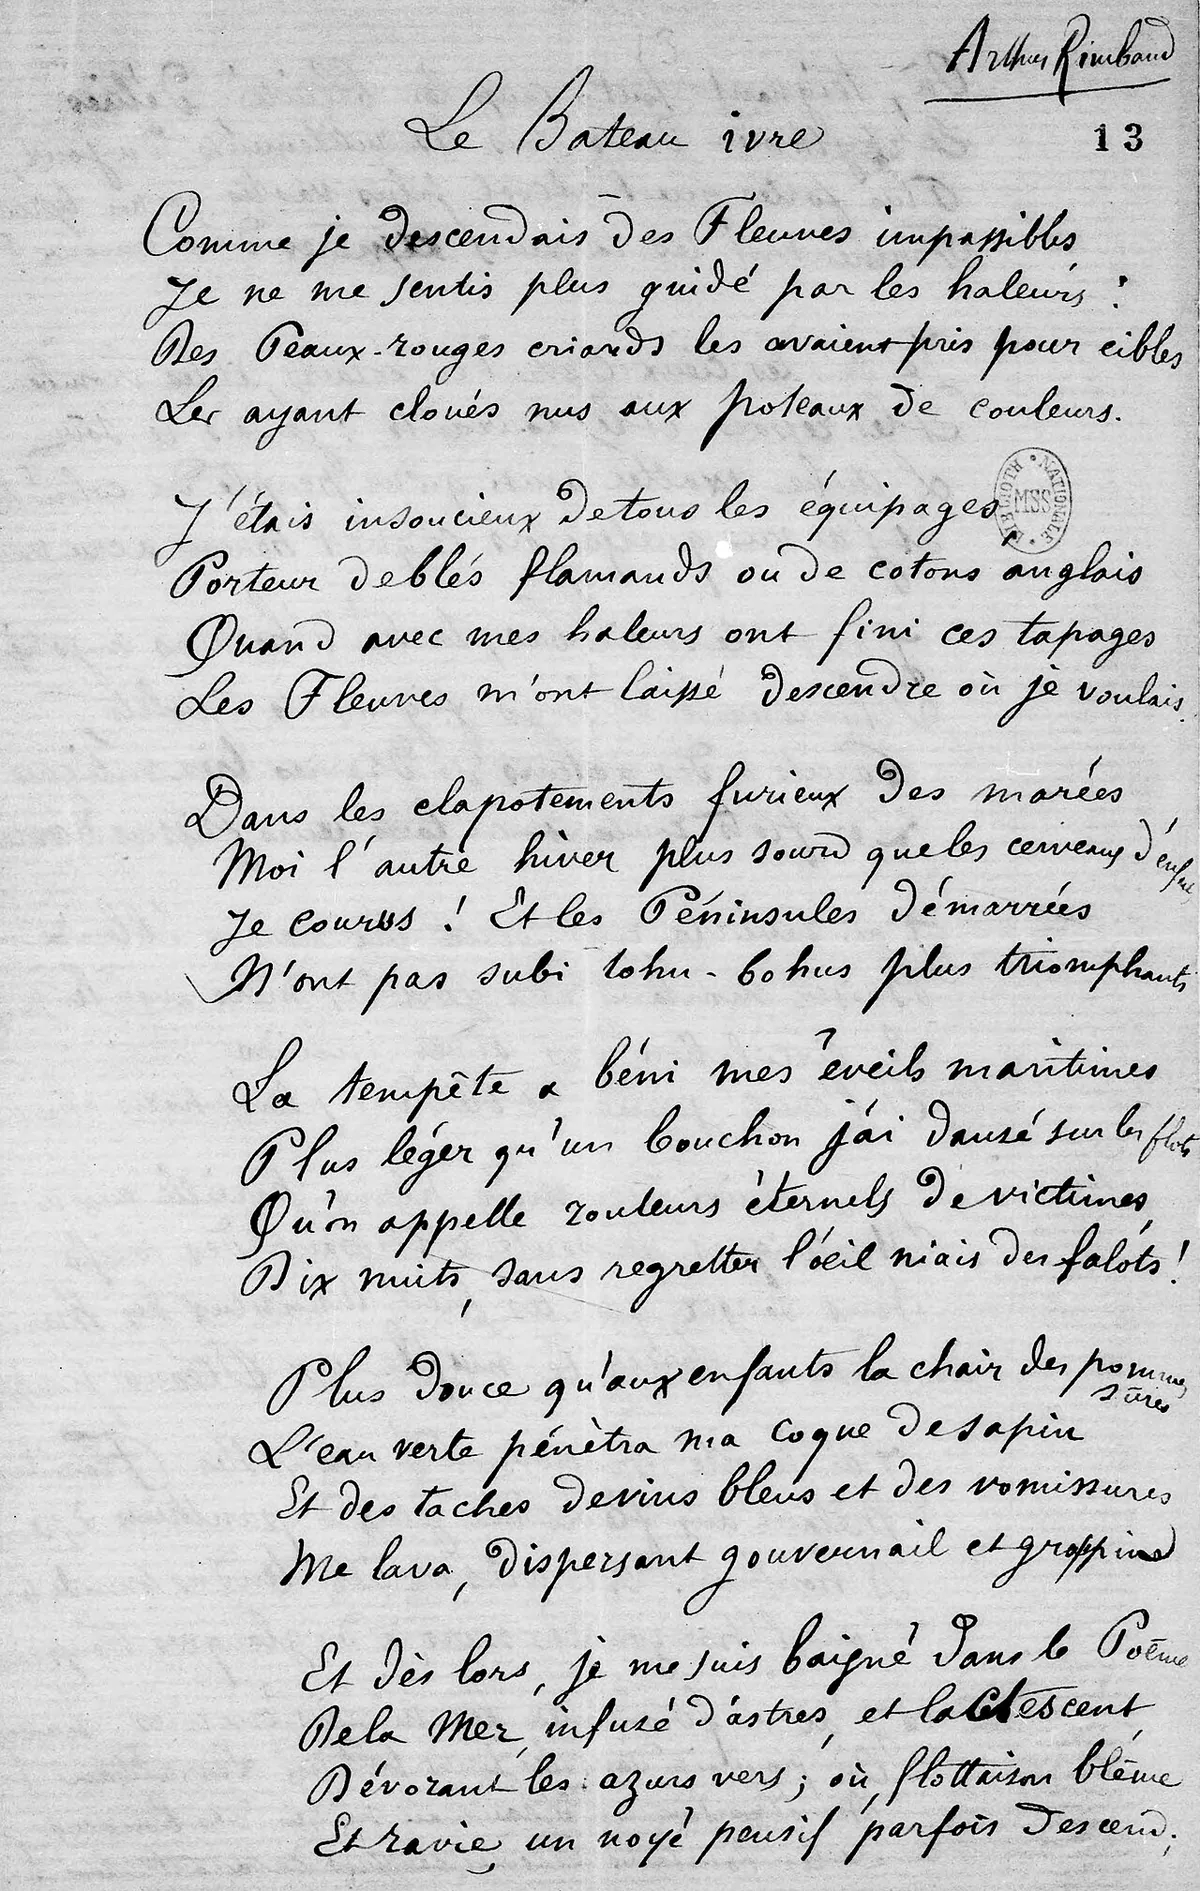 Arthur Rimbaud
Le Bateau ivre
13
Comme je descendais des Fleuves impassibles
Je ne me sentis plus guidé par les haleurs :
Des Peaux-rouges criards les avaient pris pour cibles
Les ayant cloués nus aux poteaux de couleurs.
J'étais insoucieux de tous les équipages,
BIBLIOTH NATIONALE MSS
Porteur de blés flamands ou de cotons anglais
Quand avec mes haleurs ont fini ces tapages
Les Fleuves m'ont laissé descendre où je voulais.
Dans les clapotements furieux des marées
Moi l'autre hiver plus sourd que les cerveaux d'enfa
Je courus ! Et les Péninsules démarrées
N'ont pas subi tohu-bohus plus triomphants
La tempête a béni mes éveils maritimes
Plus léger qu'un bouchon j'ai dansé sur les flots
Qu'on appelle rouleurs éternels de victimes,
Dix nuits, sans regretter l'œil niais des falots !
Plus douce qu'aux enfants la chair des pommes
sûres
L'eau verte pénètra ma coque de sapin
Et des taches de vins bleus et des vomissures
Me lava, dispersant gouvernail et grappin
Et dès lors, je me suis baigné dans le Poème
De la Mer, infusé d'astres, et lactescent,
Dévorant les azurs vers ; où, flottaison blême
Et ravie, un noyé pensif parfois descend ;